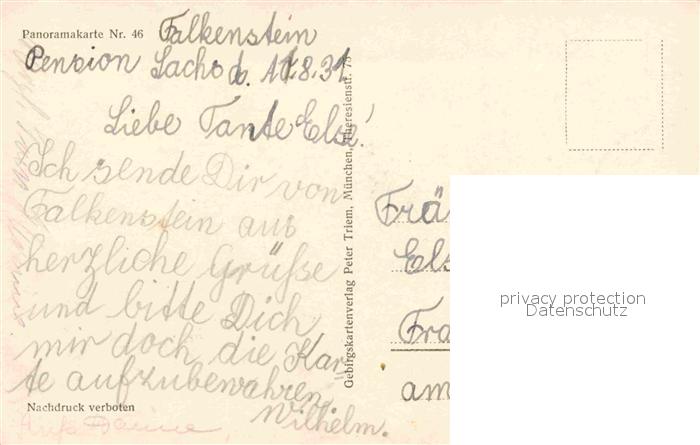 Panoramakarte Nr. 46
Falkenstein
Pension Sachs d. 11.8.31
Liebe Tante Else!
Ich sende Dir von
Falkenstein aus
herzliche Grüße
und bitte Dich
mir doch die Kar-
te aufzubewahren
Wilhelm.
Nachdruck verboten
Gebirgskartenverlag Peter Triem, München, Theresienstr. 75
Frä
Els
Fra
am
privacy protection
Datenschutz